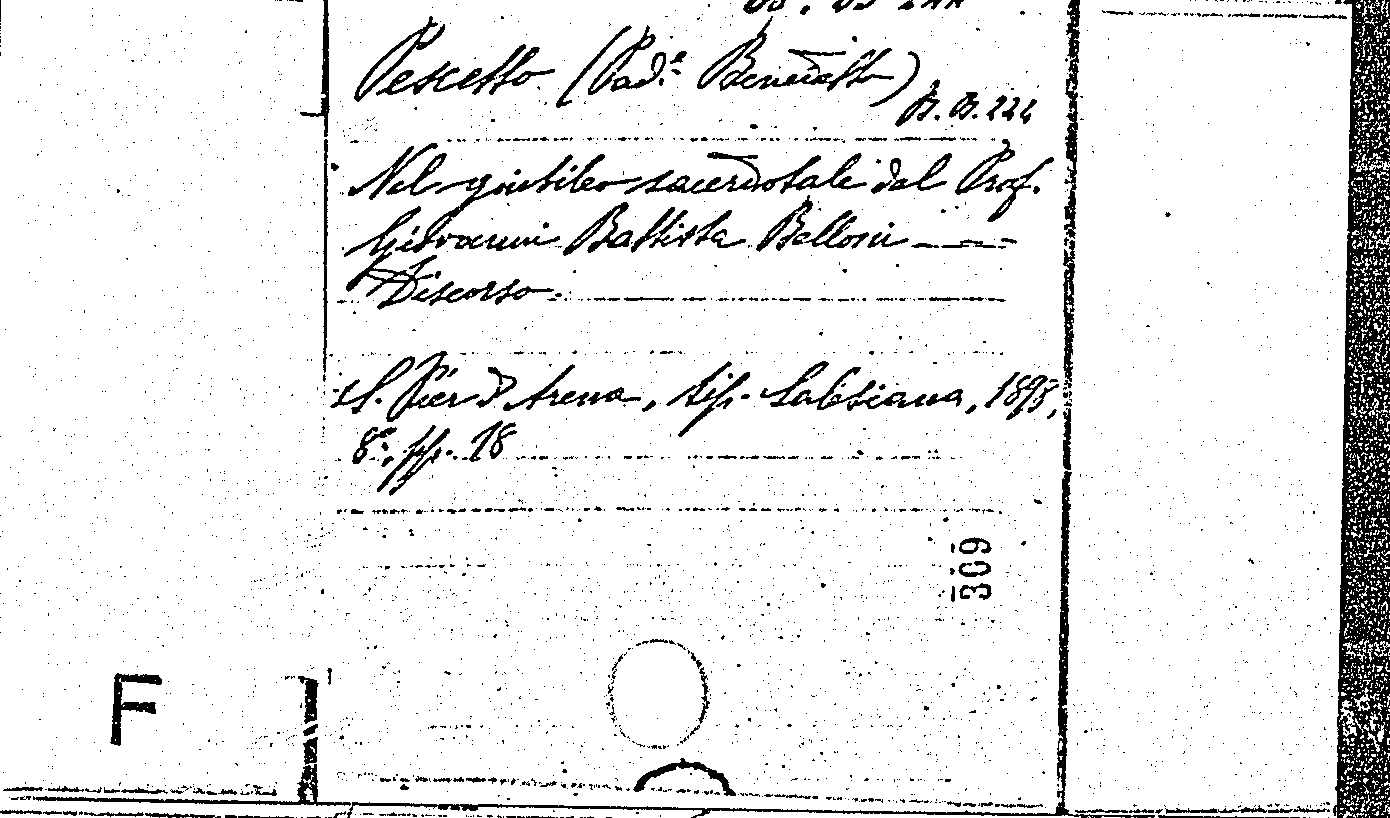 Pescetto (Pad.e Benedetto)
B. B. 222
Nel giubileo sacerdotale del Prof.
Giovanni Battista Belloni
Discorso.
S. Pier d'Arena, tip. Salesiana, 1898,
8°, pp. 18
309
F